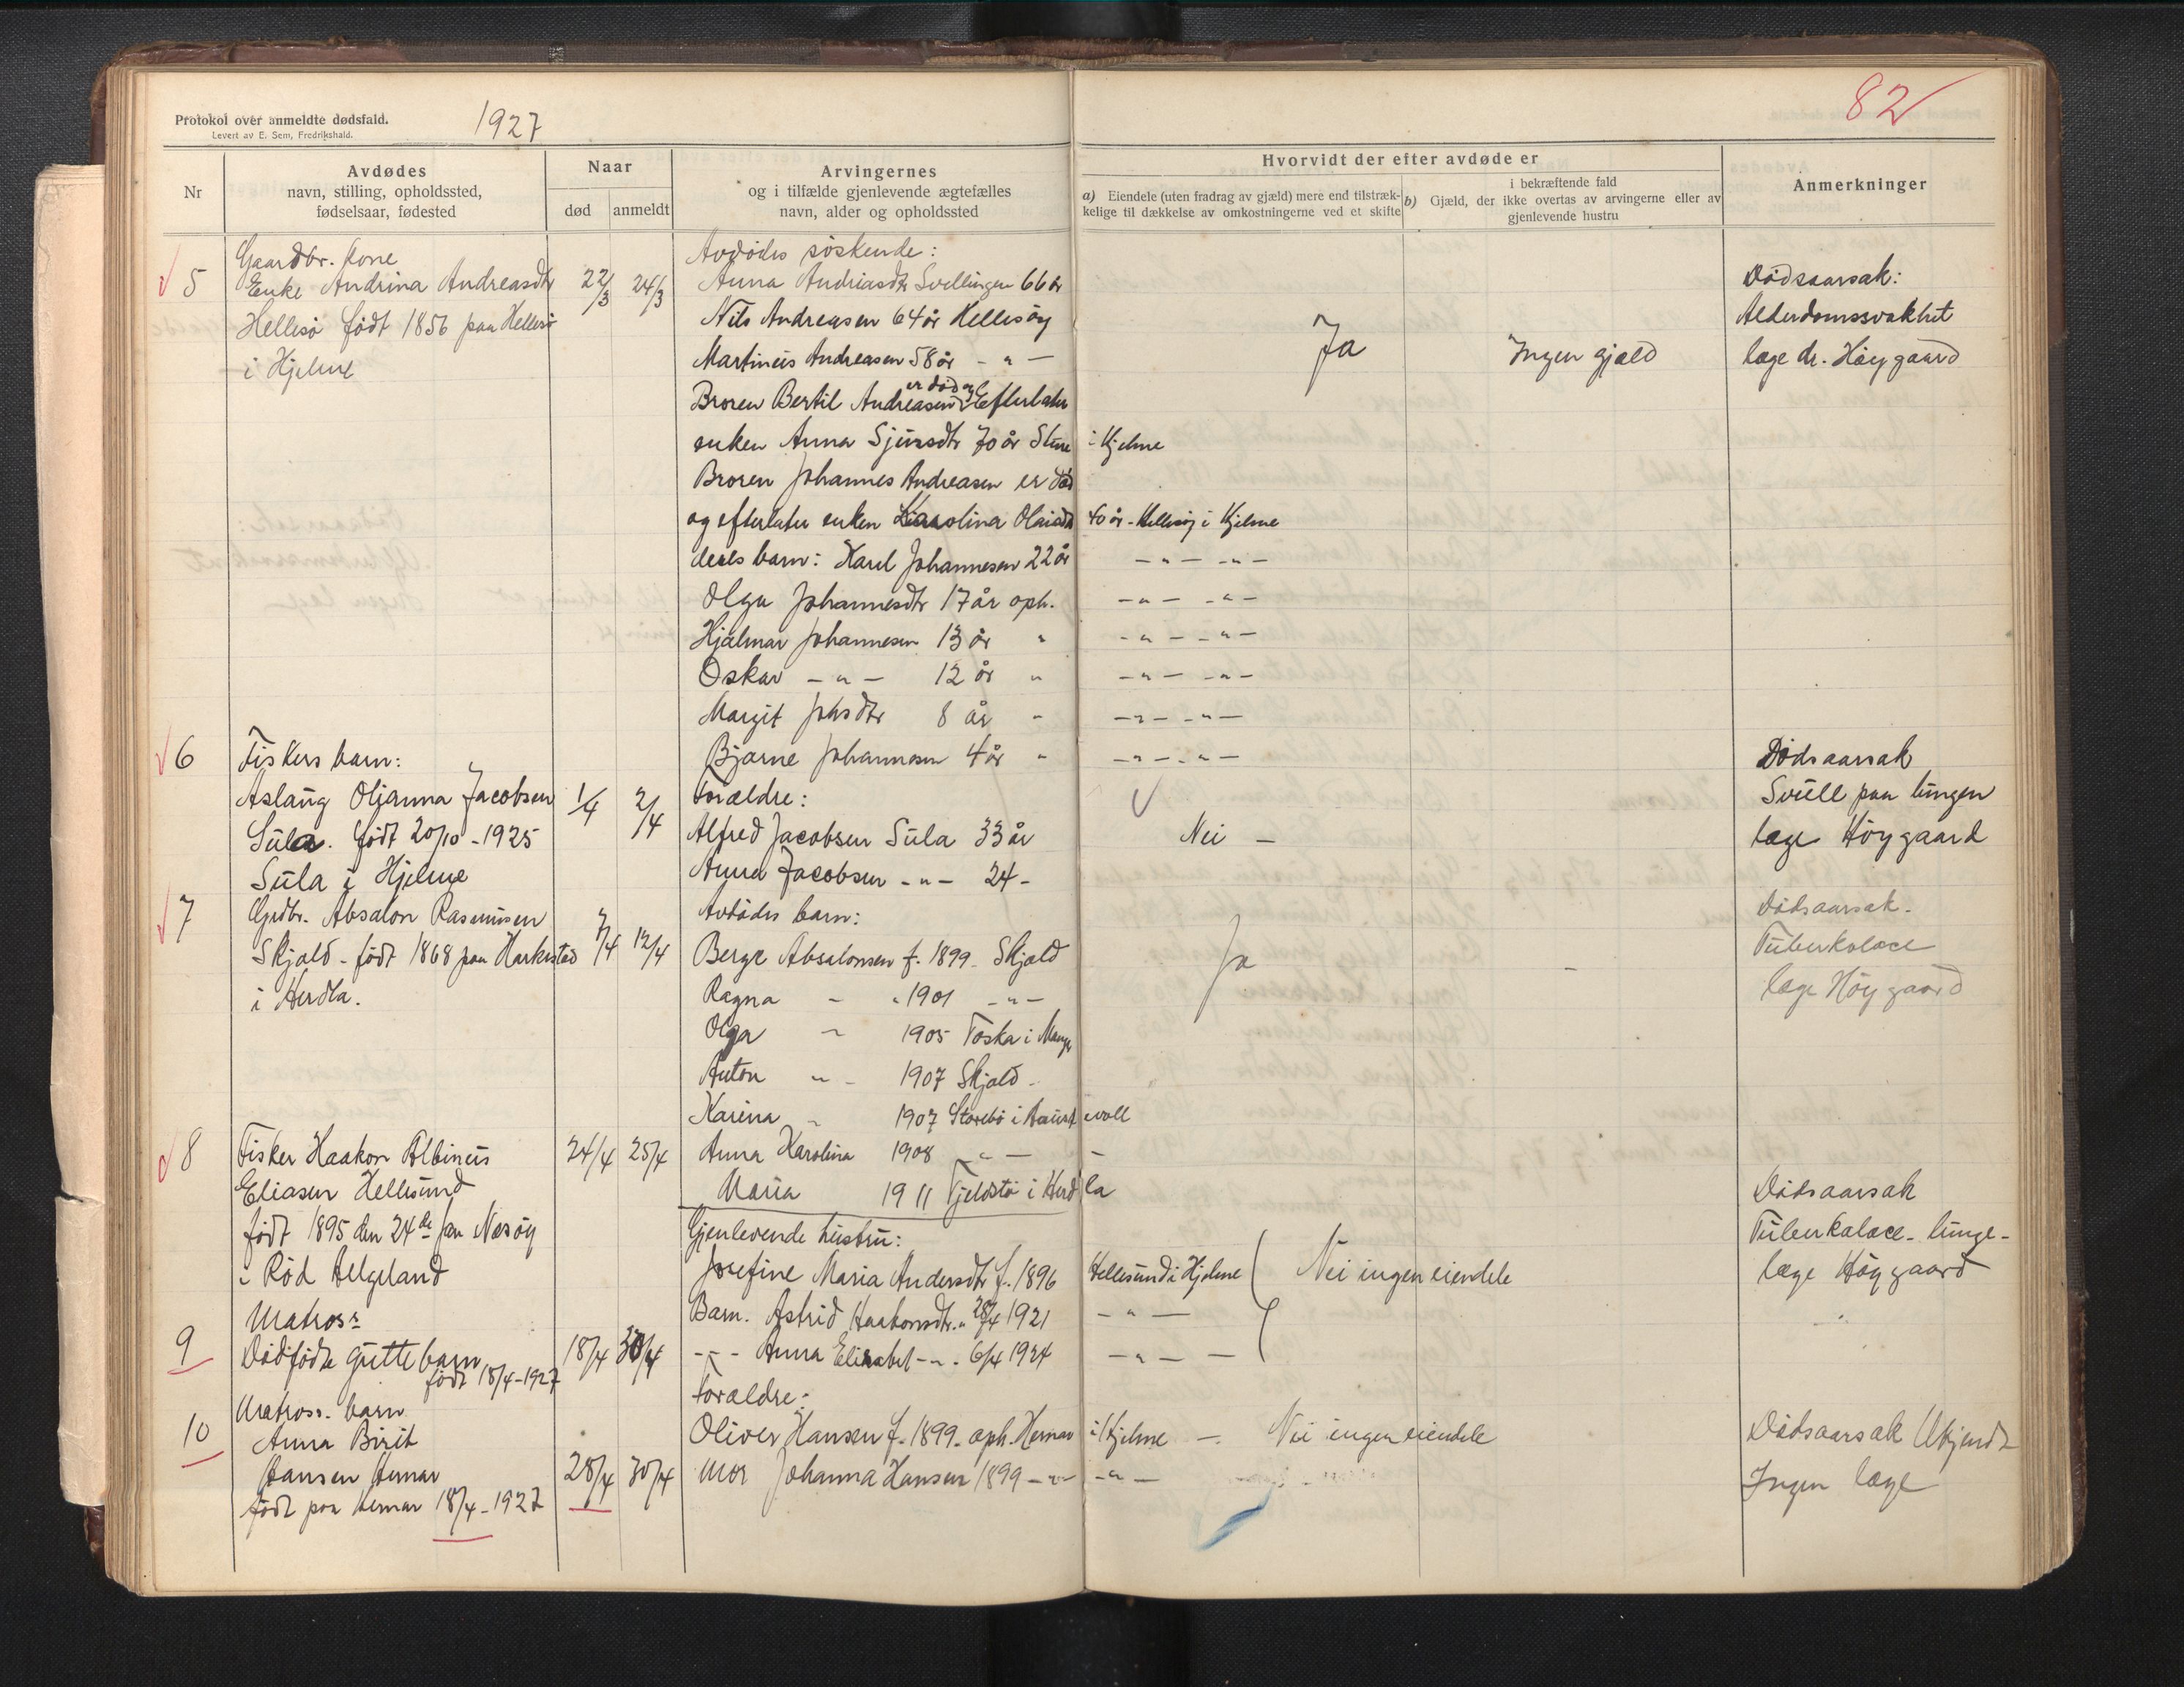 Protokol over anmeldte dødsfald.
Levert av E. Sem, Fredrikshald.
1927
82
Nr
Avdødes
navn, stilling, opholdssted,
fødselsaar, fødested
Naar
død
anmeldt
Arvingernes
og i tilfælde gjenlevende ægtefælles
navn, alder og opholdssted
Hvorvidt der efter avdøde er
a) Eiendele (uten fradrag av gjæld) mere end tilstræk-
kelige til dækkelse av omkostningerne ved et skifte
i bekræftende fald
b) Gjæld, der ikke overtas av arvingerne eller av
gjenlevende hustru
Anmerkninger
5
Gaardbr. kone
Enke Andrina Andreasdtr
Hellesö födt 1856 paa Hellesö
i Hjelme
22/3
24/3
Avdödes söskende:
Anna Andreasdtr Svellingen 66 år
Nils Andreasen 64 år Hellesöy
Martinus Andreasen 58 år - " -
Broren Bertil Andreasen er död og Efterlater
enken Anna Sjursdtr 70 år Sture i Hjelme
Broren Johannes Andreasen er död
og efterlater enken Karolina Olaisdtr 40 år - Hellesöy i Hjelme
deres barn: Karl Johannesen 22 år - " - - " -
Olga Johannesdtr 17 år oph. - " - - " -
Hjalmar Johannesen 13 år " - " - - " -
Oskar - " - 12 år " - " - - " -
Margit Johsdtr 8 år " - " - - " -
Bjarne Johannesen 4 år " - " - - " -
Ja
Ingen gjæld
Dödsaarsak:
Alderdomssvakhet
læge dr. Höygaard
6
Fiskers barn:
Aslaug Oljanna Jacobsen
Sula. födt 20/10 - 1925
Sula i Hjelme
1/4
2/4
Forældre:
Alfred Jacobsen Sula 33 år
Anna Jacobsen - " - 24 -
Nei -
Dödsaarsak
Svull paa lungen
læge Höygaard
7
Grdbr. Absalon Rasmusen
Skjold - födt 1868 paa Harkestad
i Herdla.
7/4
12/4
Avdödes barn:
Berge Absalonsen f. 1899 - Skjold
Ragna - " 1901 - " -
Olga - 1905 Toska i Manger
Anton " - 1907 Skjold -
Karina " 1907 Storebö i Austevoll
Anna Karolina 1908 - " - -
Maria 1911 Fjeldstö i Herdla
Ja
-
Dödsaarsak -
Tuberkolace
læge Höygaard
8
Fisker Haakon Albinus
Eliasen Hellesund
födt 1895 den 24de jan Næsöy
i Röd Helgeland
24/4
25/4
Gjenlevende hustru:
Josefine Maria Andersdtr f. 1896 Hellesund i Hjelme
Barn. Astrid Haakonsdtr. " 28/4 1921 - " -
- - - Anna Elisabet - " - 6/4 1924 - " - -
Nei ingen eiendele
Dödsaarsak
Tuberkalace - lunge -
læge Höygaard
9
Matros:
Dödfödte guttebarn
födt 18/4 - 1927
18/4
30/4
10
Matros:. barn
Anna Birit
Hansen Hernar
födt paa Hernar 18/4 - 1927
28/4
30/4
Forældre:
Oliver Hansen f. 1899 - oph. Hernar i Hjelme -
Mor Johanna Hansen 1899 - " - - " -
Nei ingen eiendele
Dödsaarsak Ukjendt
Ingen læge